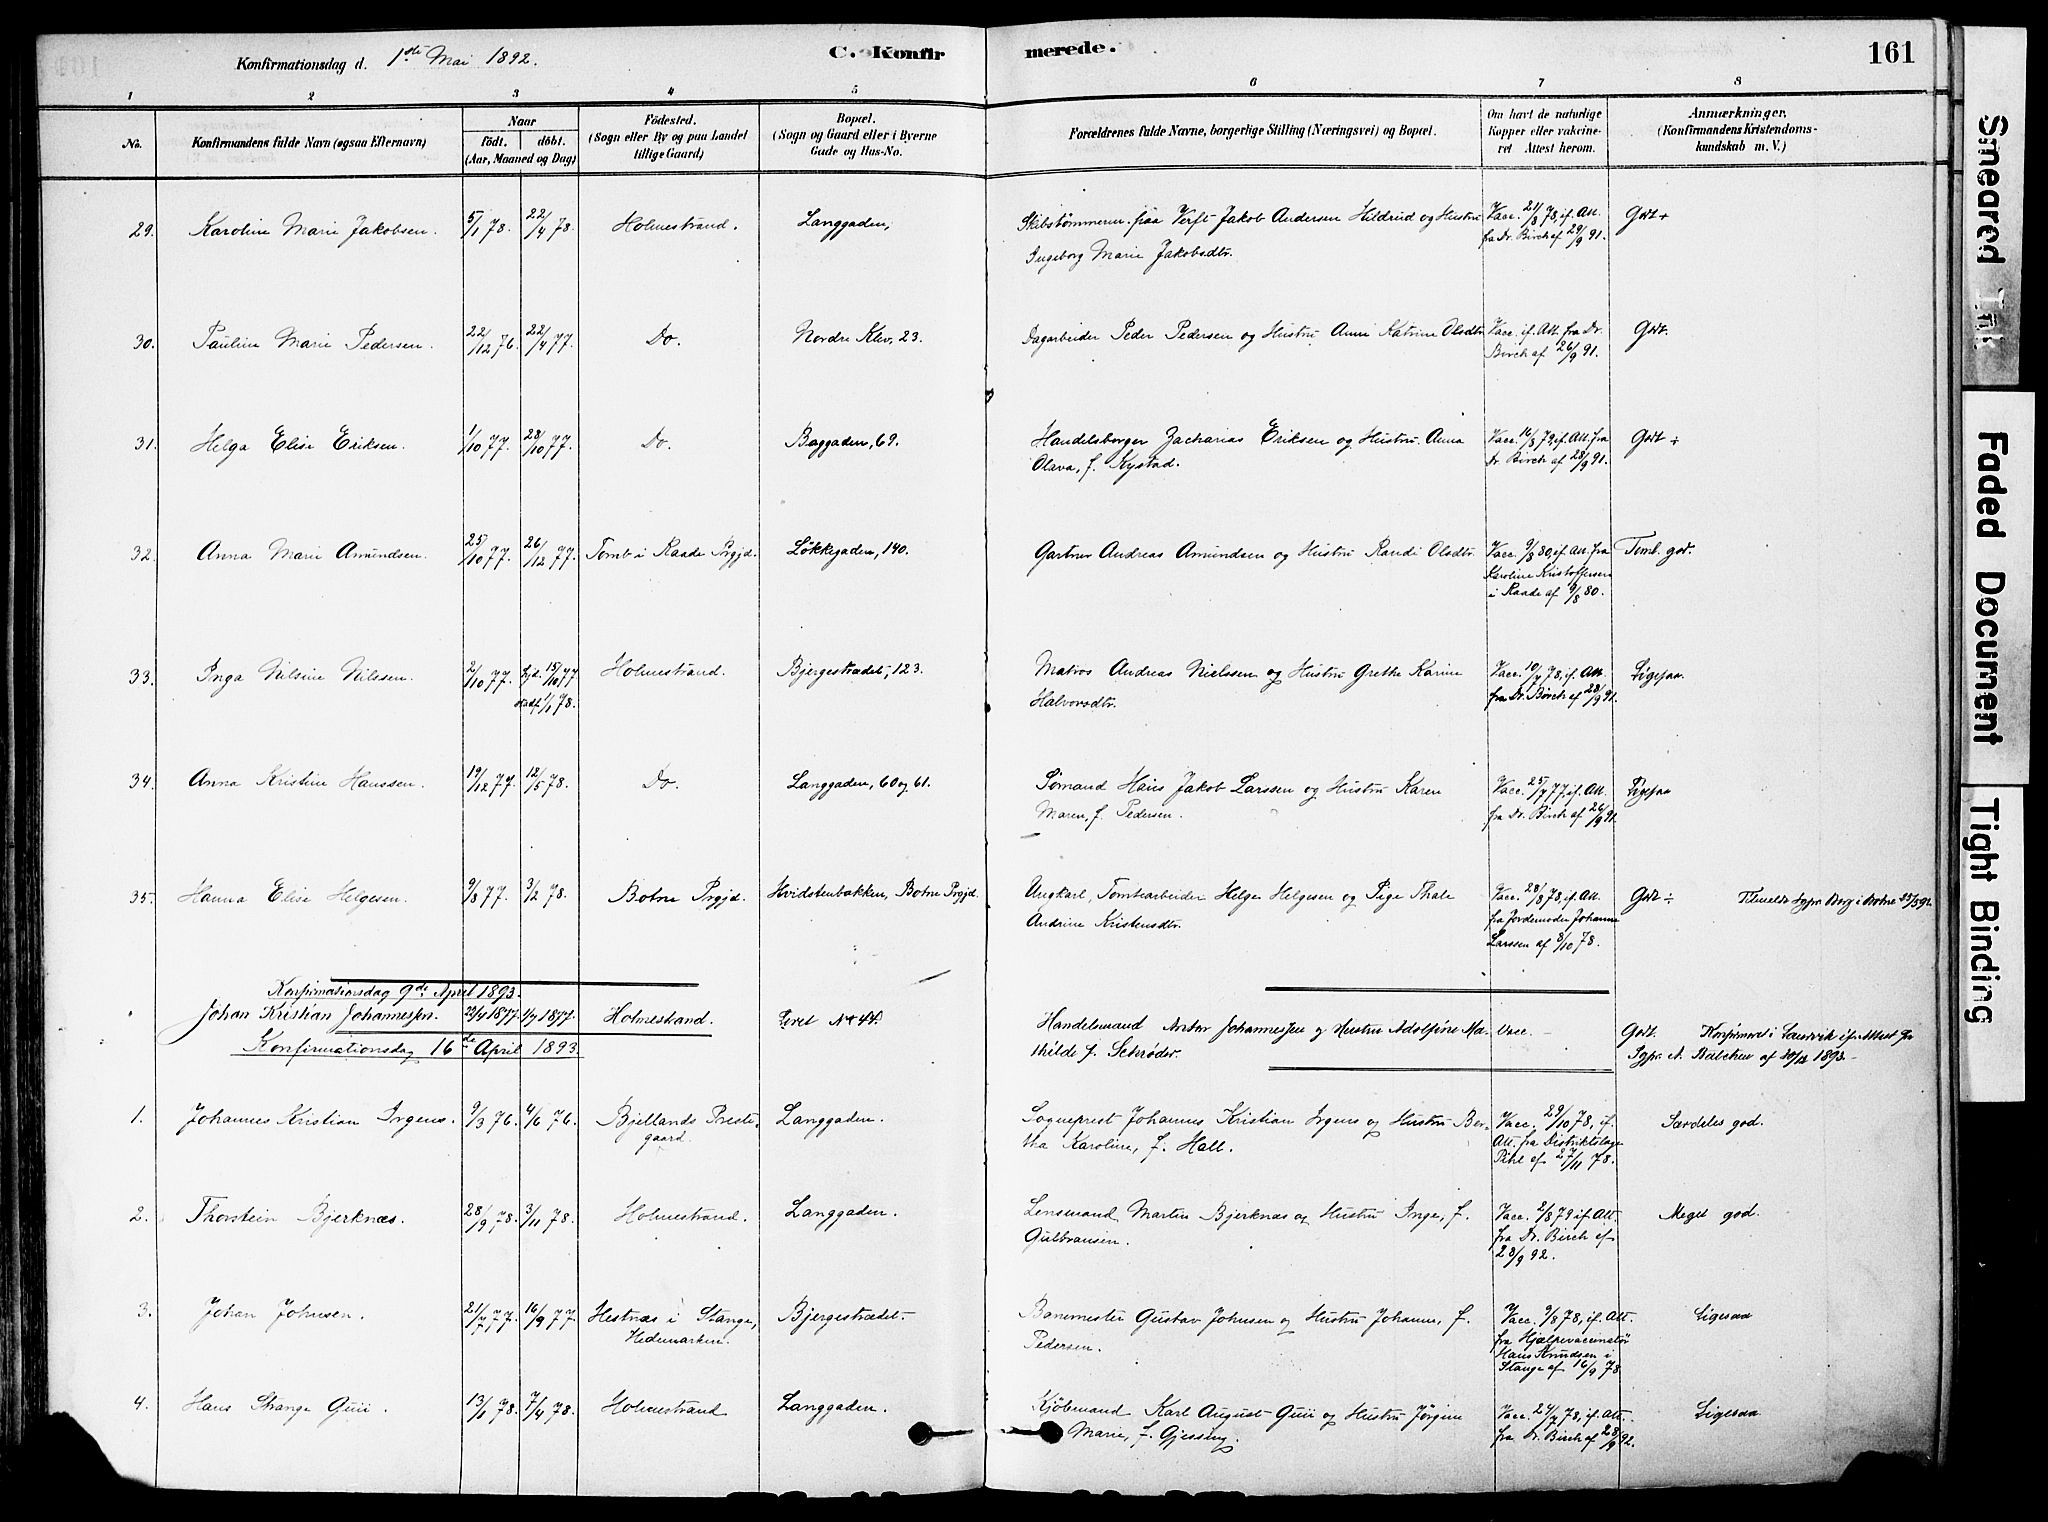 Konfirmationsdag d. 1ste Mai 1892.
C. Konfirmerede.
161
1 2 3 4 5 6 7 8
No.
Konfirmandens fulde Navn (ogsaa Efternavn)
Naar
födt. döbt.
(Aar, Maaned og Dag)
Födested.
(Sogn eller By og paa Landet
tillige Gaard)
Bopæl.
(Sogn og Gaard eller i Byerne
Gade og Hus-No.
Forældrenes fulde Navne, borgerlige Stilling (Næringsvei) og Bopæl.
Om havt de naturlige
Kopper eller vakcine-
ret Attest herom.
Anmærkninger.
(Konfirmandens Kristendoms-
kundskab m. V.)
29. Karoline Marie Jakobsen. 5/1 78. 22/4 78. Holmestrand. Langgaden, Skibstømmerm. paa Verft Jakob Andersen Hildrud og Hustru Vacc. 21/8 78, if. Att. Godt +
Ingeborg Marie Jakobsdtr. fra Dr. Birch af 29/9 91.
30. Pauline Marie Pedersen. 22/12 76. 22/4 77. Do. Nordre Klev, 23. Dagarbeider Peder Pedersen og Hustru Anne Katrine Olsdtr Vacc. if. Att. fra Dr. Godt.
Birch af 26/9 91.
31. Helga Elise Eriksen. 1/10 77. 28/10 77. Do. Baggaden, 69. Handelsborger Zacharias Eriksen og Hustru Anna Vacc. 16/8 79, if. Att. fra Godt ÷
Olava, f. Kystad. Dr. Birch af 28/9 91.
32. Anna Marie Amundsen. 25/10 77. 26/12 77. Tomb i Raade Prgjd. Løkkegaden, 140. Gartner Andreas Amundsen og Hustru Randi Olsdtr. Vacc. 9/8 80, if. Att. fra Teml. god.
Karoline Kristoffersen
i Raade af 9/8 80.
33. Inga Nilsine Nilssen. 2/10 77. Hjd. 15/10 77 Holmestrand. Bjergestrædet, 123. Matros Andreas Nielssen og Hustru Grethe Karine Vacc. 10/7 78, if. Att. Ligesaa.
Stadf. 1/1 78. Halvorsdtr. fra Dr. Birch af 28/9 91.
34. Anna Kristine Hanssen. 19/12 77. 12/5 78. Do. Langgaden, 60 og 61. Sømand Hans Jakob Larssen og Hustru Karen Vacc. 25/7 77, if. Att. Ligesaa
Maren, f. Pedersen. fra Dr. Birch af 26/9 91.
35. Hanna Elise Helgesen. 9/8 77. 3/2 78. Botne Prgjd. Hvidstenbakken, Botne Prgjd. Ungkarl, Tomtearbeider Helge Helgesen og Pige Thale Vacc. 28/8 78, if. Att. Godt ÷ Tilmeldt Sgpr. Borg i Botne
Andrine Kristensdtr. fra Jordemoder Johanne
Larssen af 8/10 78.
Konfirmationsdag 9de April 1893.
Johan Kristian Johannessen. 29/4 1877. 1/7 1877. Holmestrand. No 44. Handelsmand Johannessen og Hustru Adolfine Ma- Vacc. - Godt. Konfirmeret i if. Attest fra
thilde f. Schrøder. Sgpr. af 1893.-
Konfirmationsdag 16de April 1893.
1. Johannes Kristian Irgens. 9/3 76. 4/6 76. Bjellands Preste- Langgaden. Sogneprest Johannes Kristian Irgens og Hustru Ber- Vacc. 29/10 78, if. Særdeles god.
gaard. tha Karoline, f. Hall. Att. fra Distriktslæge
Pihl af 27/11 78.
2. Thorstein Bjerknæs. 28/9 78. 3/11 78. Holmestrand. Langgaden. Lensmand Martin Bjerknæs og Hustru Inge, f. Vacc. 2/8 79 if. Att. Meget god.
Gulbransen. fra Dr. Birch af
28/9 92.
3. Johan Johnsen. 21/7 77. 16/9 77. Hestnæs i Stange, Bjergestrædet. Banemester Gustav Johnsen og Hustru Johanne, f. Vacc. 9/8 78, if. Att. Ligesaa
Hedemarken. Pedersen. fra Hjælpevaccinatør
Hans Knudsen i
Stange af 16/9 78
4. Hans Strange Guii. 13/1 78. 7/4 78. Holmestrand Langgaden. Kjøbmand Karl August Guii og Hustru Jørgine Vacc. 24/7 78, if. Att. Ligesaa
Marie, f. Gjessing. fra Dr. Birch af 28/9 92.
Smeared Ink
Faded Document
Tight Binding